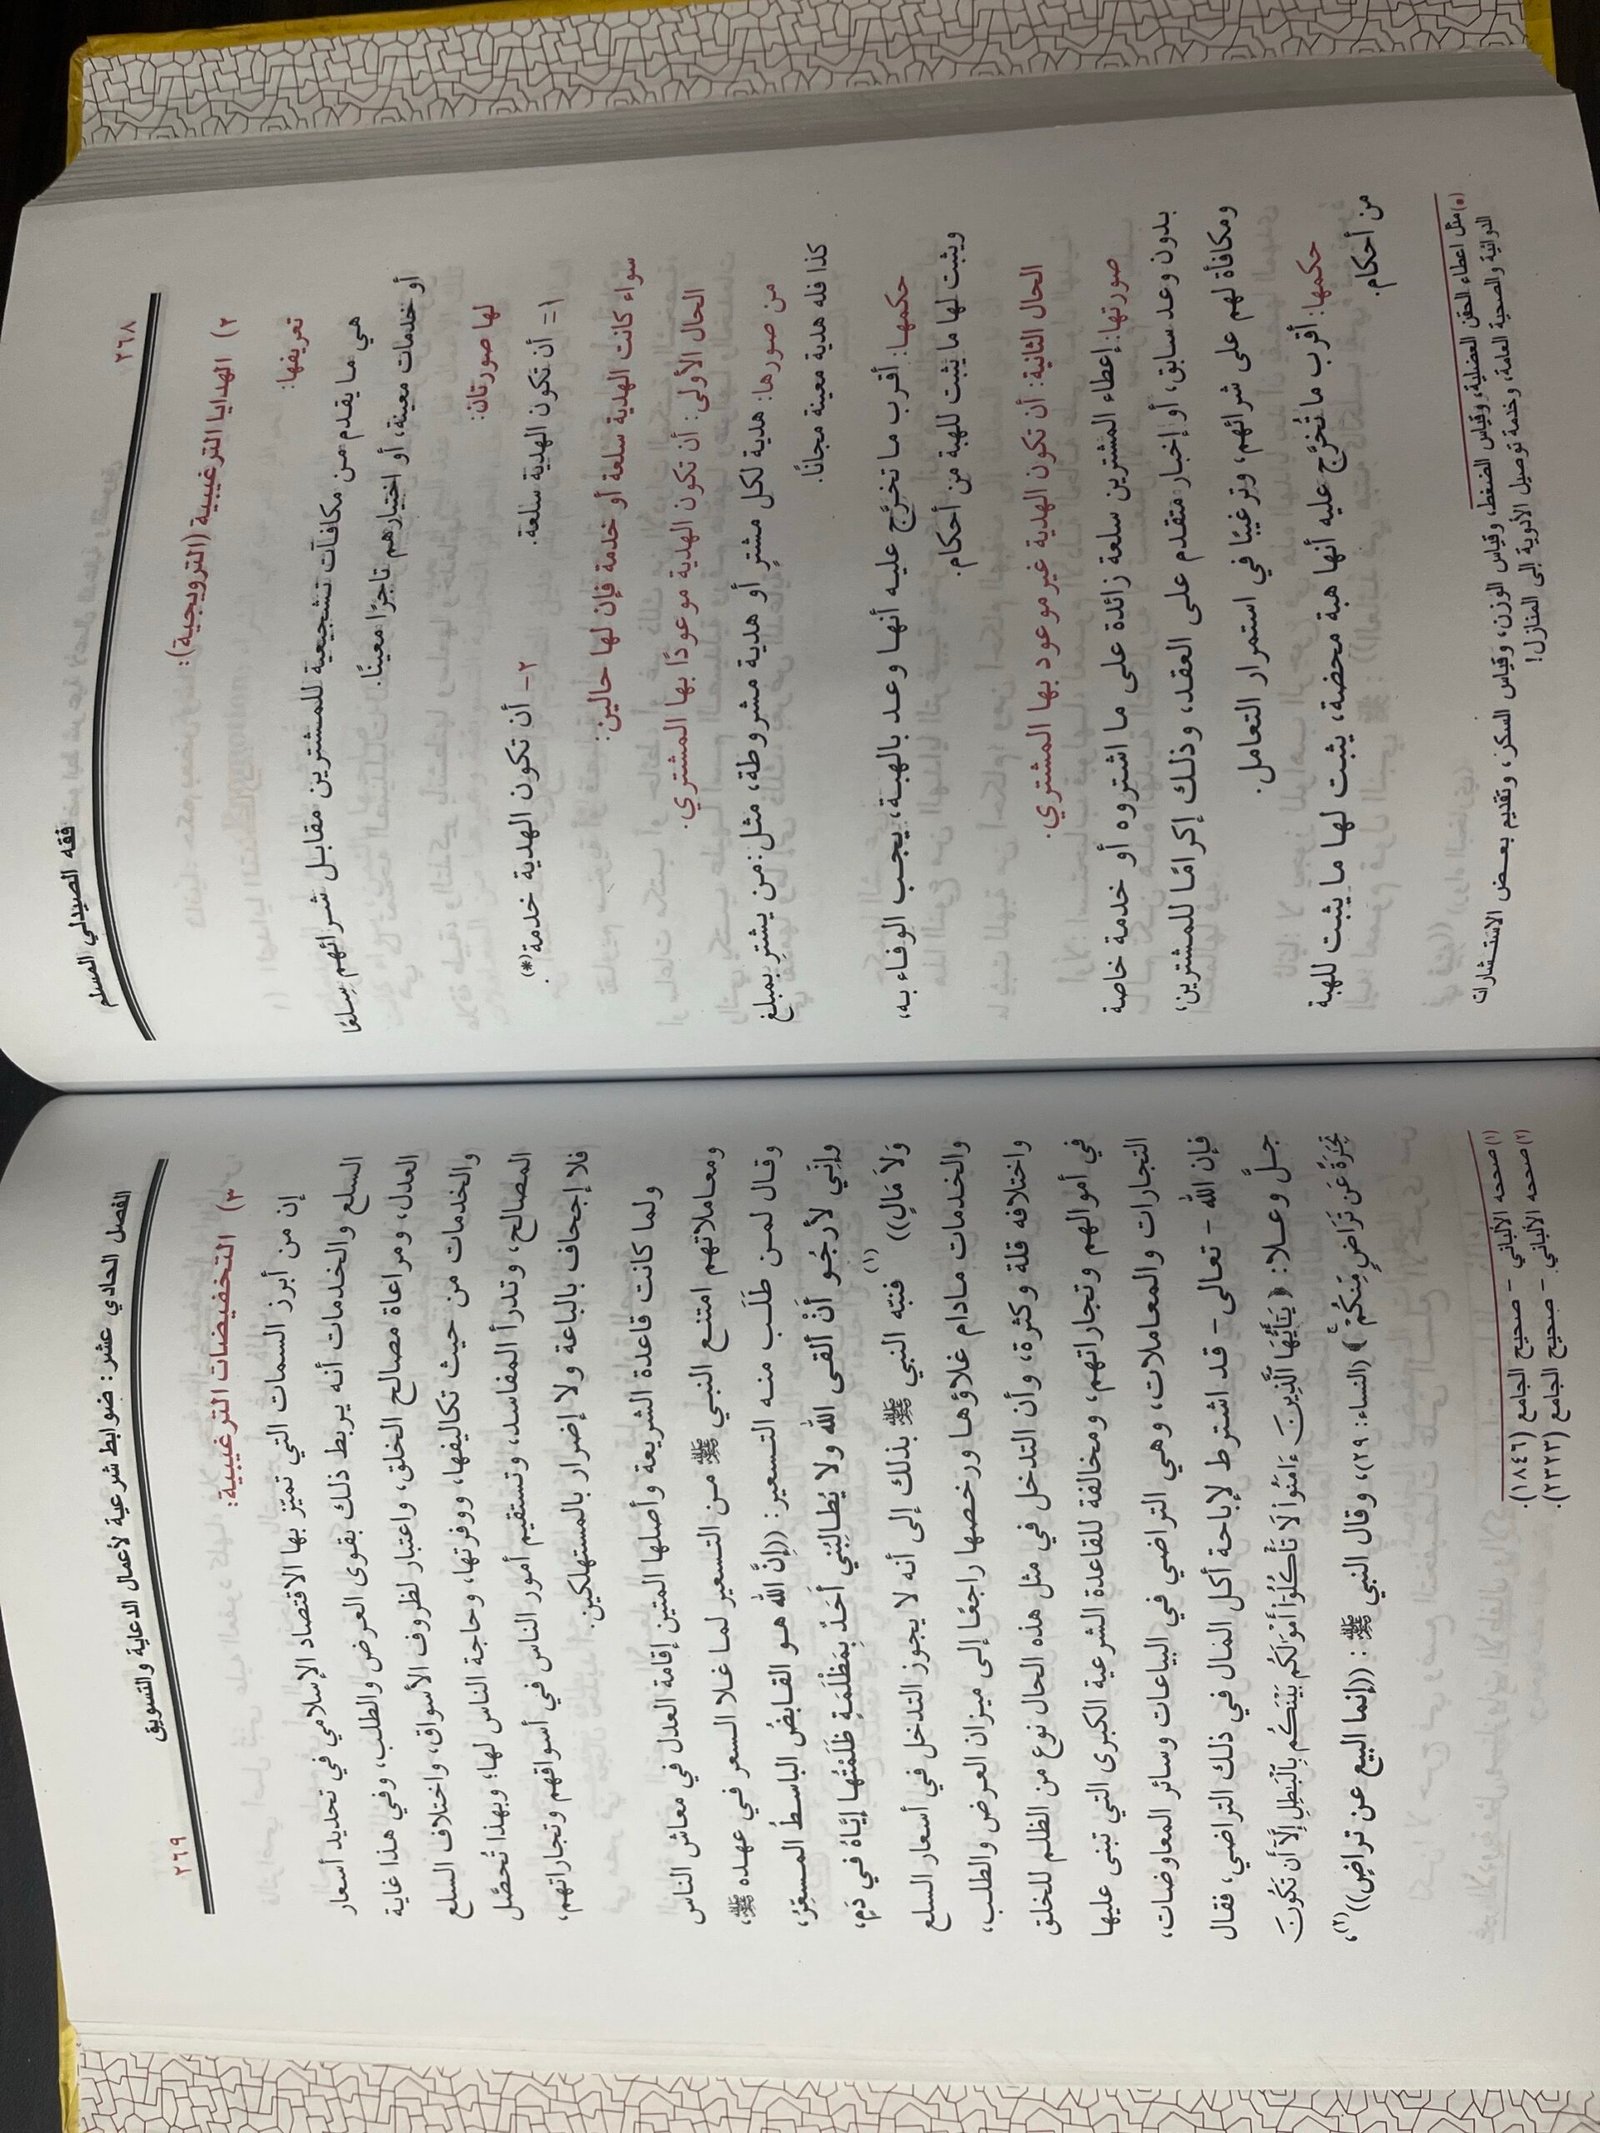 ٢٦٨
فقه الصيدلي المسلم
٢) الهدايا الترغيبية (الترويجية):
تعريفها:
هي ما يقدم من مكافآت تشجيعية للمشترين مقابل شرائهم سِلعًا
أو خدمات معينة، أو اختيارهم تاجرًا معينًا.
لها صورتان:
١= أن تكون الهدية سلعة.
٢- أن تكون الهدية خدمة(*).
سواء كانت الهدية سلعة أو خدمة فإن لها حالين:
الحال الأولى: أن تكون الهدية موعودًا بها المشتري.
من صورها: هدية لكل مشترٍ أو هدية مشروطة، مثل: من يشترِ بمبلغ
كذا فله هدية معينة مجانًا.
حكمها: أقرب ما تخرَّج عليه أنها وعد بالهبة، يجب الوفاء به،
ويثبت لها ما يثبت للهبة من أحكام.
الحال الثانية: أن تكون الهدية غير موعود بها المشتري.
صورتها: إعطاء المشترين سلعة زائدة على ما اشتروه أو خدمة خاصة
بدون وعد سابق، أو إخبار متقدم على العقد، وذلك إكرامًا للمشترين؛
ومكافأة لهم على شرائهم، وترغيبًا في استمرار التعامل.
حكمها: أقرب ما تُخرَّج عليه أنها هبة محضة، يثبت لها ما يثبت للهبة
من أحكام.
(*) مثل اعطاء الحقن العضلية، وقياس الضغط، وقياس الوزن، وقياس السكر، وتقديم بعض الاستشارات
الدوائية والصحية العامة، وخدمة توصيل الأدوية إلى المنازل!
الفصل الحادي عشر: ضوابط شرعية لأعمال الدعاية والتسويق
٢٦٩
٣) التخفيضات الترغيبية:
إن من أبرز السمات التي تميّز بها الاقتصاد الإسلامي في تحديد أسعار
السلع والخدمات أنه يربط ذلك بقوى العرض والطلب، وفي هذا غاية
العدل، ومراعاة مصالح الخلق، واعتبار لظروف الأسواق، واختلاف السلع
والخدمات من حيث تكاليفها، ووفرتها، وحاجة الناس لها؛ وبهذا تُحصَّل
المصالح، وتدرأ المفاسد، وتستقيم أمور الناس في أسواقهم وتجاراتهم،
فلا إجحاف بالباعة ولا إضرار بالمستهلكين.
ولما كانت قاعدة الشريعة وأصلها المتين إقامة العدل في معاش الناس
ومعاملاتهم امتنع النبي ﷺ من التسعير لما غلا السعر في عهده ﷺ،
وقال لمن طَلَب منه التسعير: ((إنَّ الله هو القابضُ الباسطُ المسعِّرُ،
وإنِّي لأرجُو أنْ ألقى الله ولا يُطالِبُني أَحَدٌ بِمَظْلَمَةٍ ظَلَمْتُها إيَّاهُ في دَمٍ،
وَلاَ مَالٍ))(١) فنبّه النبي ﷺ بذلك إلى أنه لا يجوز التدخل في أسعار السلع
والخدمات مادام غلاؤها ورخصها راجعًا إلى ميزان العرض والطلب،
واختلافه قلة وكثرة، وأن التدخل في مثل هذه الحال نوع من الظلم للخلق
في أموالهم وتجاراتهم، ومخالفة للقاعدة الشرعية الكبرى التي تبنى عليها
التجارات والمعاملات، وهي التراضي في البياعات وسائر المعاوضات،
فإن الله - تعالى - قد اشترط لإباحة أكل المال في ذلك التراضي، فقال
جلَّ وعلا: ﴿ يَٰٓأَيُّهَا ٱلَّذِينَ ءَامَنُوا۟ لَا تَأْكُلُوٓا۟ أَمْوَٰلَكُم بَيْنَكُم بِٱلْبَٰطِلِ إِلَّآ أَن تَكُونَ
تِجَٰرَةً عَن تَرَاضٍ مِّنكُمْ ۚ ﴾ (النساء: ٢٩)، وقال النبي ﷺ: ((إنما البيع عن تراضٍ))(٢)،
(١) صححه الألباني - صحيح الجامع (١٨٤٦).
(٢) صححه الألباني - صحيح الجامع (٢٣٢٣).